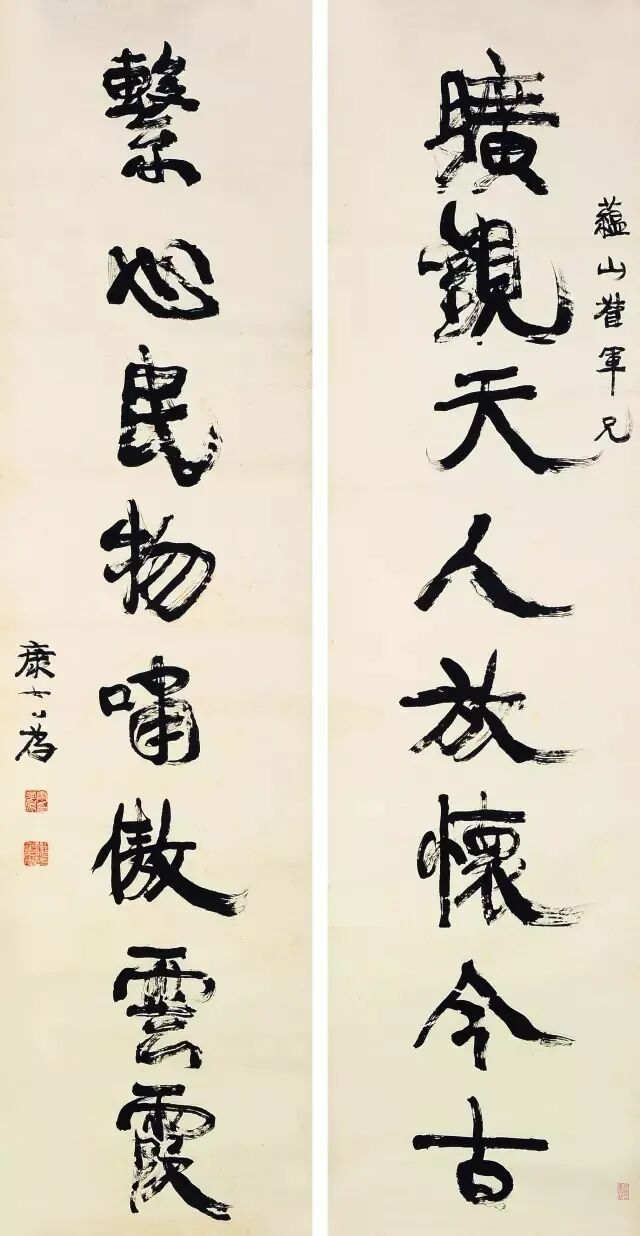 曠觀天人放懷今古
蘊山督軍兄
繫心民物嘯傲雲霞
康有為